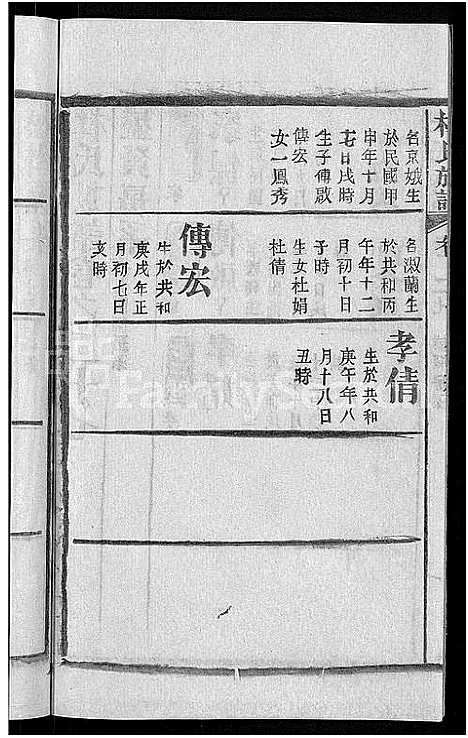 名京娥生
於民國甲
申年十月
廿日戌時
生子傳啟
傳宏
女一鳳秀
名淑蘭生
於共和丙
午年十二
月初十日
子時
生女杜娟
杜倩
傳宏
生於共和
庚戌年正
月初七日
亥時
孝倩
生於共和
庚午年八
月十八日
丑時